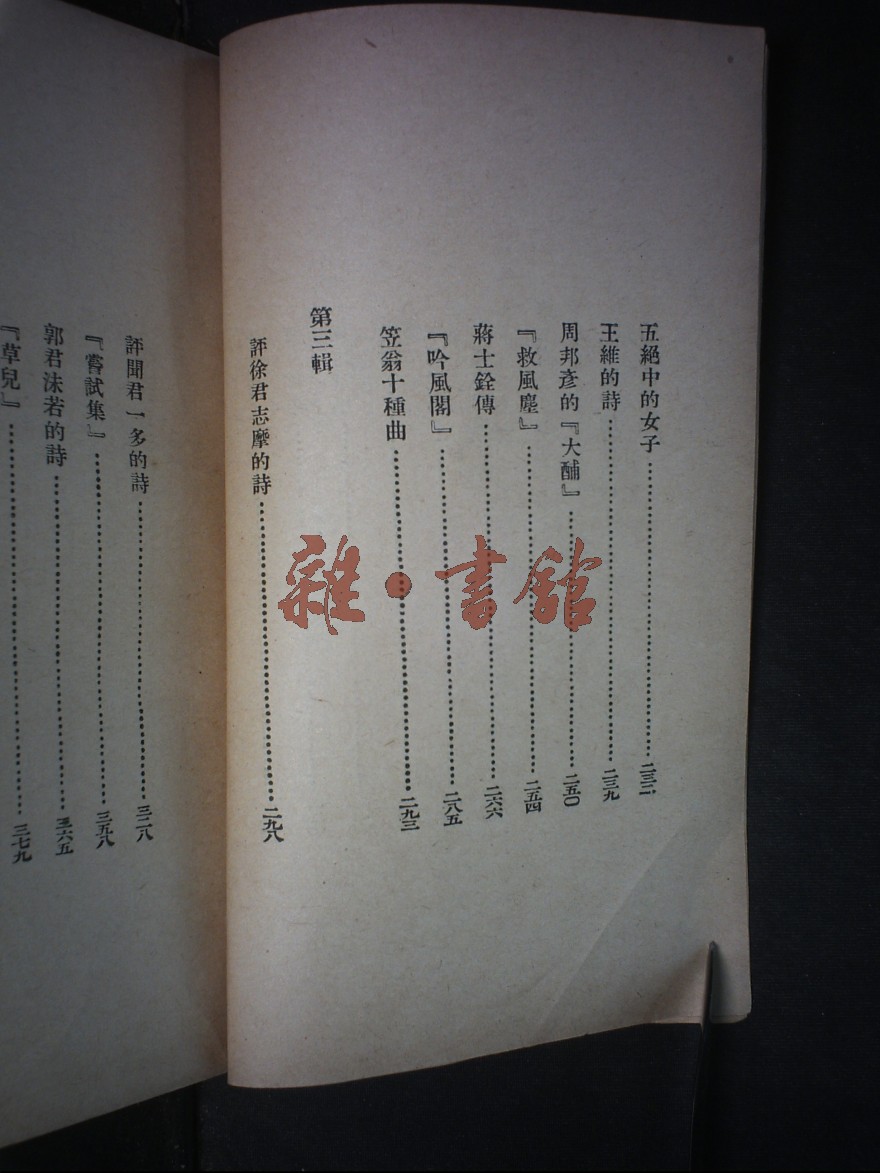 五絕中的女子⋯⋯二三二
王維的詩⋯⋯二三九
周邦彥的『大酺』⋯⋯二五〇
『救風塵』⋯⋯二五四
蔣士銓傳⋯⋯二六六
『吟風閣』⋯⋯二八五
笠翁十種曲⋯⋯二九三
第三輯
評徐君志摩的詩⋯⋯二九八
評聞君一多的詩⋯⋯三二八
『嘗試集』⋯⋯三五八
郭君沫若的詩⋯⋯三六五
『草兒』⋯⋯三七九
雜·書館